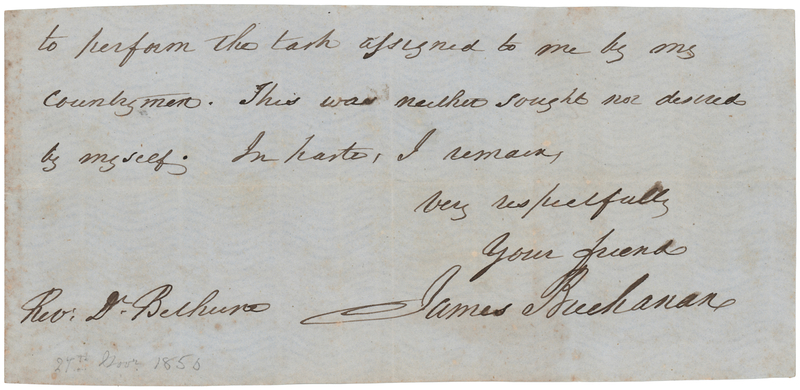 to perform the task assigned to me by my
countrymen. This was neither sought nor desired
by myself. In haste, I remain,
very respectfully
Your friend
James Buchanan
Rev. Dr. Bethune
Nov. 1856